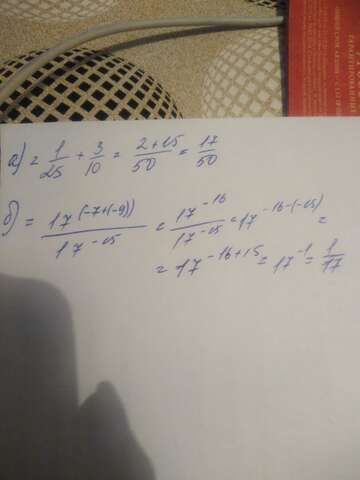 а) = 1/25 + 3/10 = 2+15/50 = 17/50
б) = 17^(-7+(-9))/17^-15 = 17^-16/17^-15 = 17^-16-(-15) =
= 17^-16+15 = 17^-1 = 1/17